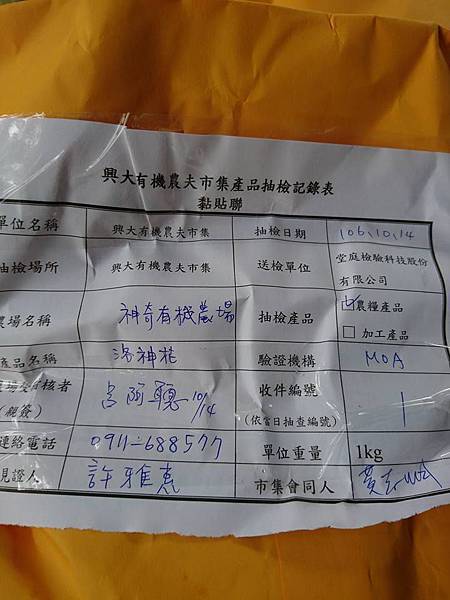 興大有機農夫市集產品抽檢記錄表
黏貼聯
單位名稱 興大有機農夫市集 抽檢日期 106.10.14
抽檢場所 興大有機農夫市集 送檢單位 堂庭檢驗科技股份
有限公司
農場名稱 神奇有機農場 抽檢產品 ☑農糧產品
☐ 加工產品
產品名稱 洛神花 驗證機構 MOA
核者 呂阿聰 10/14 收件編號 1
(親簽) (依當日抽查編號)
連絡電話 0911-688577 單位重量 1kg
見證人 許雅惠 市集會同人